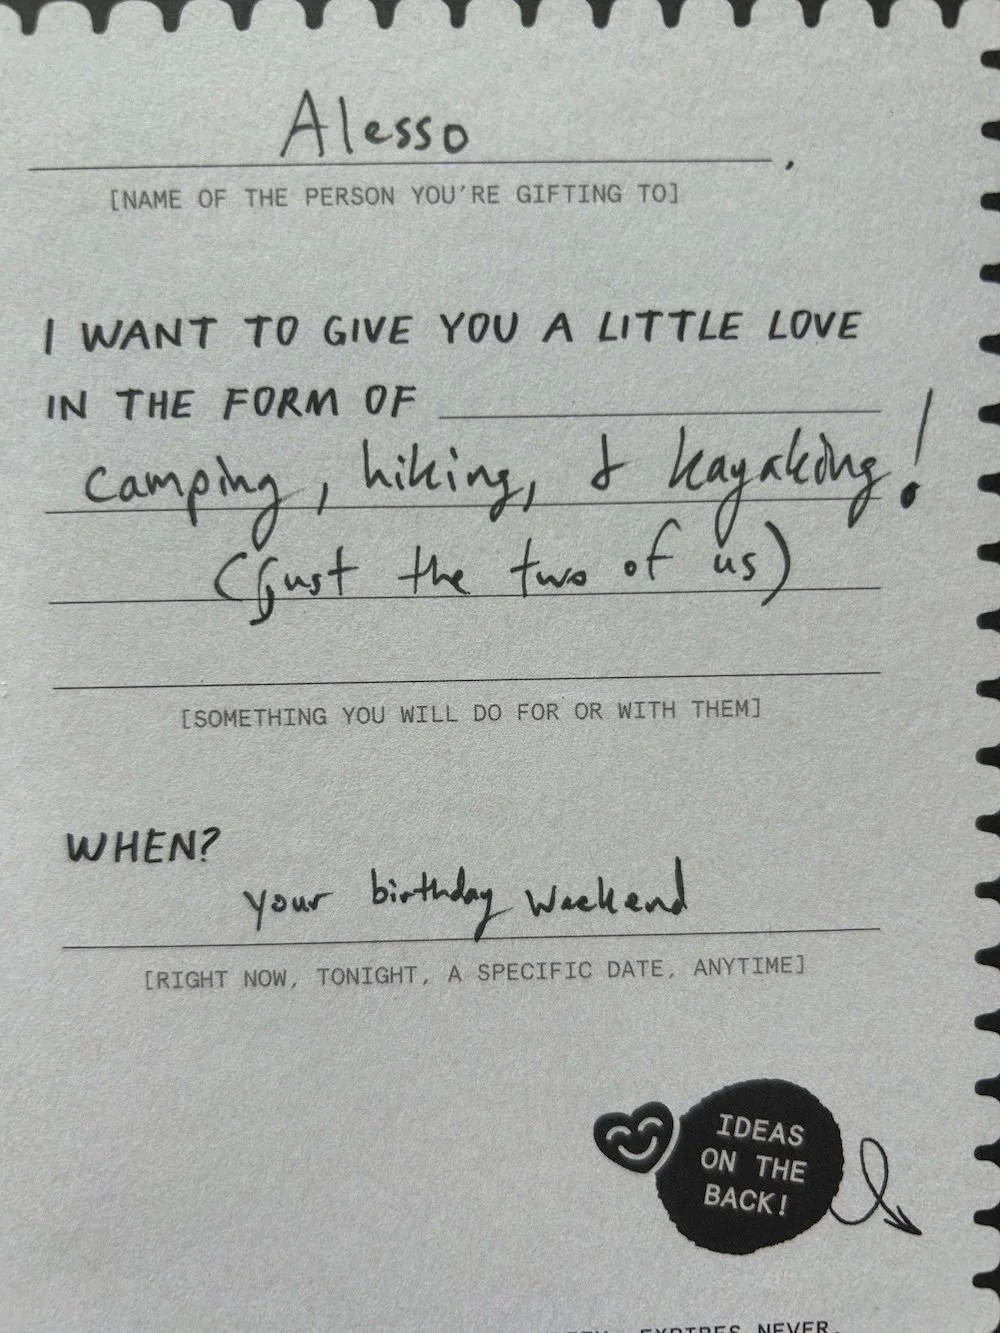 Alesso
,
[NAME OF THE PERSON YOU'RE GIFTING TO]
I WANT TO GIVE YOU A LITTLE LOVE
IN THE FORM OF
camping, hiking, & kayaking!
(just the two of us)
[SOMETHING YOU WILL DO FOR OR WITH THEM]
WHEN?
your birthday weekend
[RIGHT NOW, TONIGHT, A SPECIFIC DATE, ANYTIME]
IDEAS
ON THE
BACK!
EXPIRES NEVER.